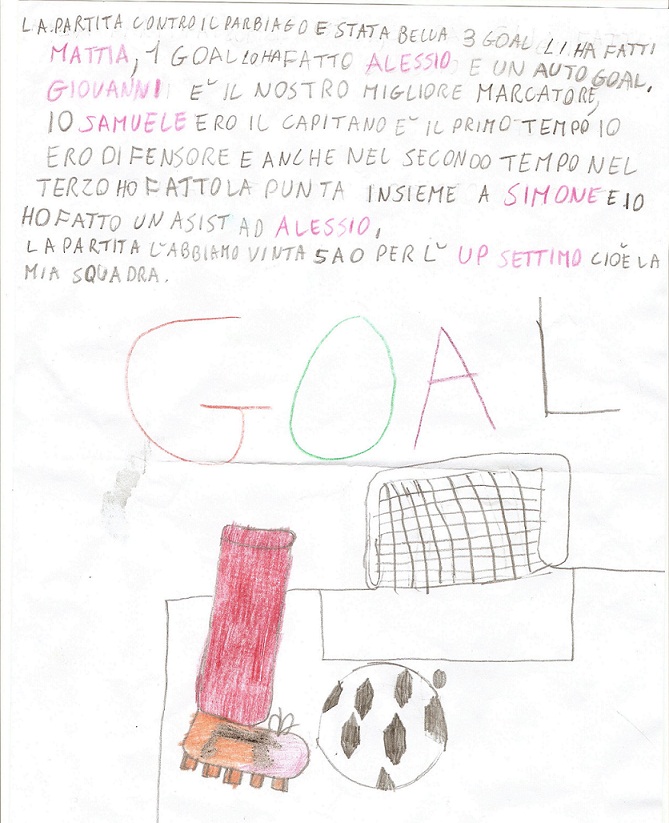 LA PARTITA CONTRO IL PARBIAGO E STATA BELLA 3 GOAL LI HA FATTI
MATTIA, 1 GOAL LO HA FATTO ALESSIO E UN AUTO GOAL.
GIOVANNI E' IL NOSTRO MIGLIORE MARCATORE,
IO SAMUELE ERO IL CAPITANO E' IL PRIMO TEMPO IO
ERO DIFENSORE E ANCHE NEL SECONDO TEMPO NEL
TERZO HO FATTO LA PUNTA INSIEME A SIMONE E IO
HO FATTO UN ASIST AD ALESSIO,
LA PARTITA L'ABBIAMO VINTA 5 A 0 PER L' UP SETTIMO CIOÈ LA
MIA SQUADRA.
GOAL